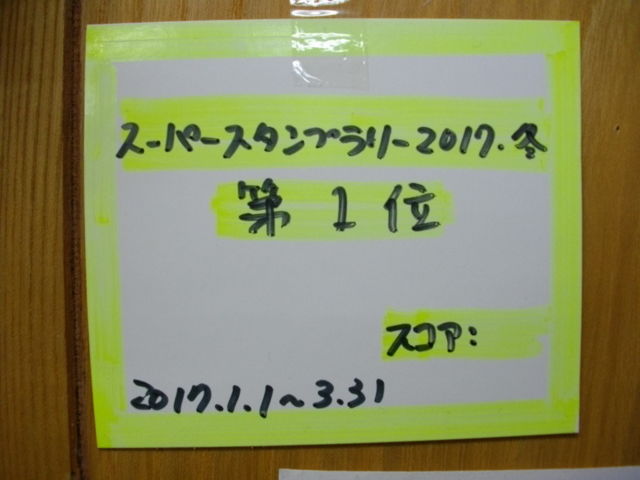 スーパースタンプラリー2017.冬
第1位
スコア:
2017.1.1〜3.31